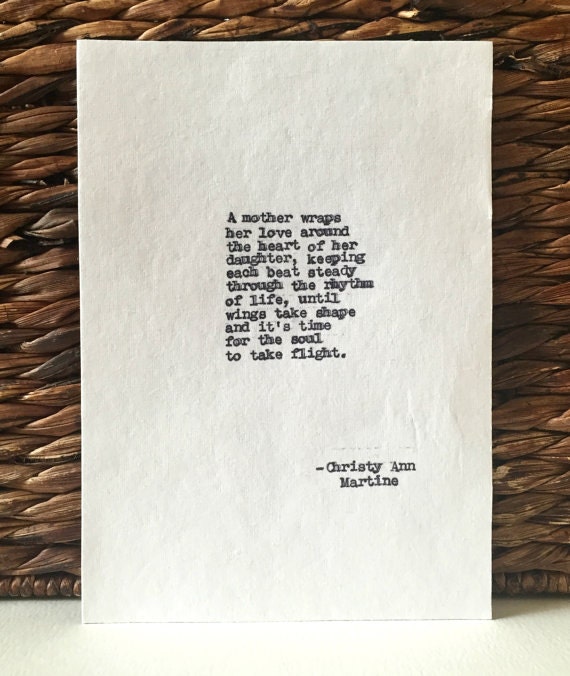 A mother wraps
her love around
the heart of her
daughter, keeping
each beat steady
through the rhythm
of life, until
wings take shape
and it's time
for the soul
to take flight.
-Christy Ann
Martine